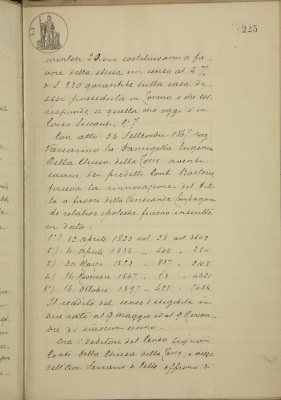 225
montesi 20 essi costituivano a fa-
vore della stessa un censo al 4 %
di L. 330 garantite sulla casa da
essi posseduta in Torino e che cor-
risponde a quella che oggi è in
Corso Siccardi, N° 7
Con atto 26 Settembre 1867 rog
Vaccarino la Damigella Eugenia
Della Chiesa della Torre avente
causa dei predetti Conti
faceva la rinnovazione del tito-
lo a favore della Veneranda Compagnia
Le relative ipoteche furono inscritte
in data:
1°) 12 Aprile 1823 vol 28 art
2°) 4 Aprile 1838
3°) 30 Marzo 1853
4°) 14 Novembre 1867
5°) 14 Ottobre 1897
Il reddito del censo è esigibile in
due rate al 9 maggio ed al 9 Novem-
bre di ciascun anno.
Ora i debitori del Censo Signori
Conti Della Chiesa della Torre, a mezzo
dell'Avv Ferraris di Celle offrono di